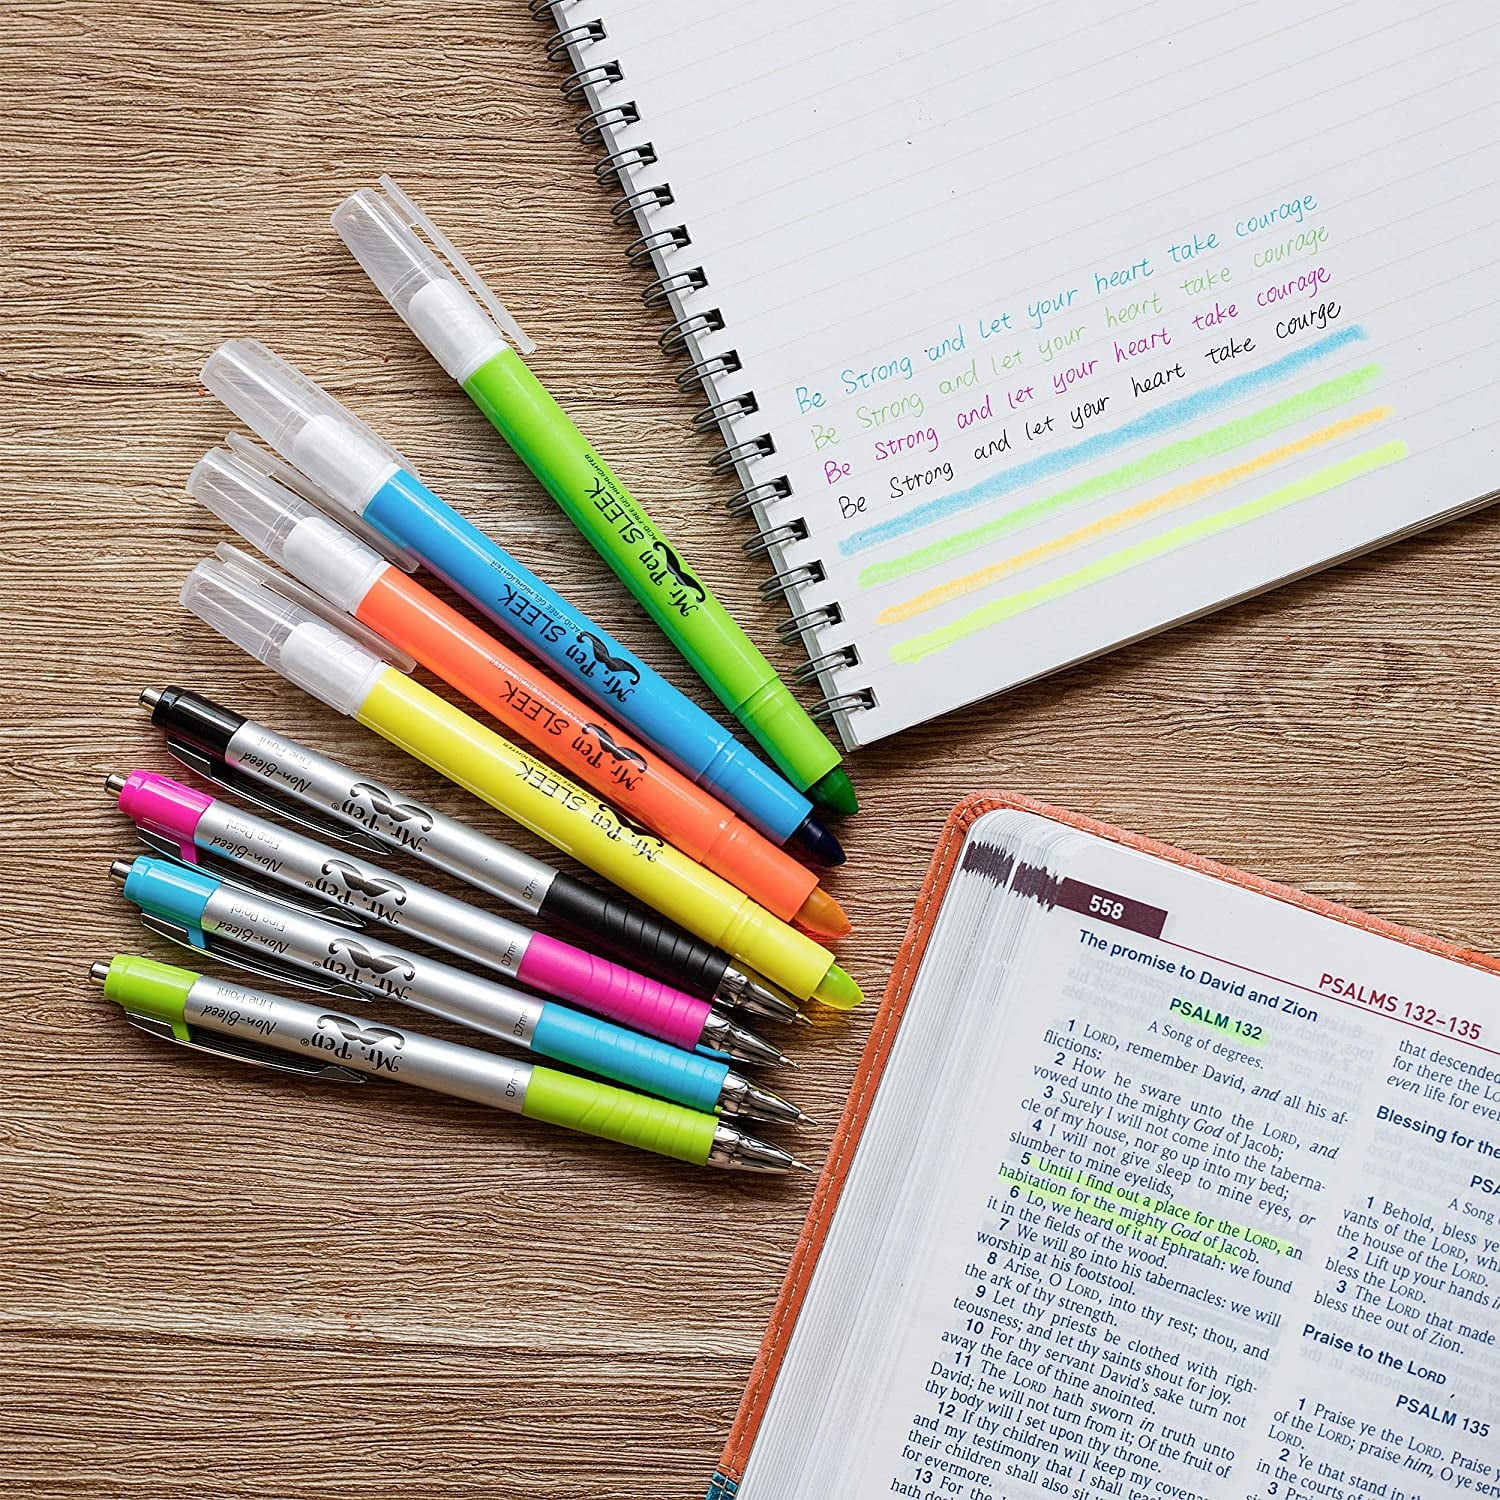 Be Strong and let your heart take courage
Be Strong and let your heart take courage
Be Strong and let your heart take courage
Be Strong and let your heart take courge
Mr. Pen SLEEK
ACID-FREE GEL HIGHLIGHTER
Mr. Pen SLEEK
ACID-FREE GEL HIGHLIGHTER
Mr. Pen SLEEK
Mr. Pen SLEEK
ACID-FREE GEL HIGHLIGHTER
Mr. Pen
Non-Bleed
Fine Point
0.7m
Mr. Pen®
Non-Bleed
Fine Point
0.7m
Mr. Pen®
Non-Bleed
Fine Point
0.7m
Mr. Pen®
Non-Bleed
Fine Point
0.7m
558
PSALMS 132–135
The promise to David and Zion
PSALM 132
A Song of degrees.
1 LORD, remember David, and all his af-
flictions:
2 How he sware unto the LORD, and
vowed unto the mighty God of Jacob;
3 Surely I will not come into the taberna-
cle of my house, nor go up into my bed;
4 I will not give sleep to mine eyes, or
slumber to mine eyelids,
5 Until I find out a place for the LORD, an
habitation for the mighty God of Jacob.
6 Lo, we heard of it at Ephratah: we found
it in the fields of the wood.
7 We will go into his tabernacles: we will
worship at his footstool.
8 Arise, O LORD, into thy rest; thou, and
the ark of thy strength.
9 Let thy priests be clothed with righ-
teousness; and let thy saints shout for joy.
10 For thy servant David's sake turn not
away the face of thine anointed.
11 The LORD hath sworn in truth unto
David; he will not turn from it; Of the fruit of
thy body will I set upon thy throne.
12 If thy children will keep my covenant
and my testimony that I shall teach
their children shall also sit
for evermore.
13 For the
hath
that descended
for there the
even life for
Blessing for the
A Song
1 Behold, bless ye
vants of the LORD,
the house of the LORD.
2 Lift up your hands
bless the LORD.
3 The LORD that made
bless thee out of Zion.
Praise to the LORD
PSALM 135
1 Praise ye the LORD. Praise
of the LORD; praise him, O ye
LORD.
2 Ye that stand in
in the courts of
3